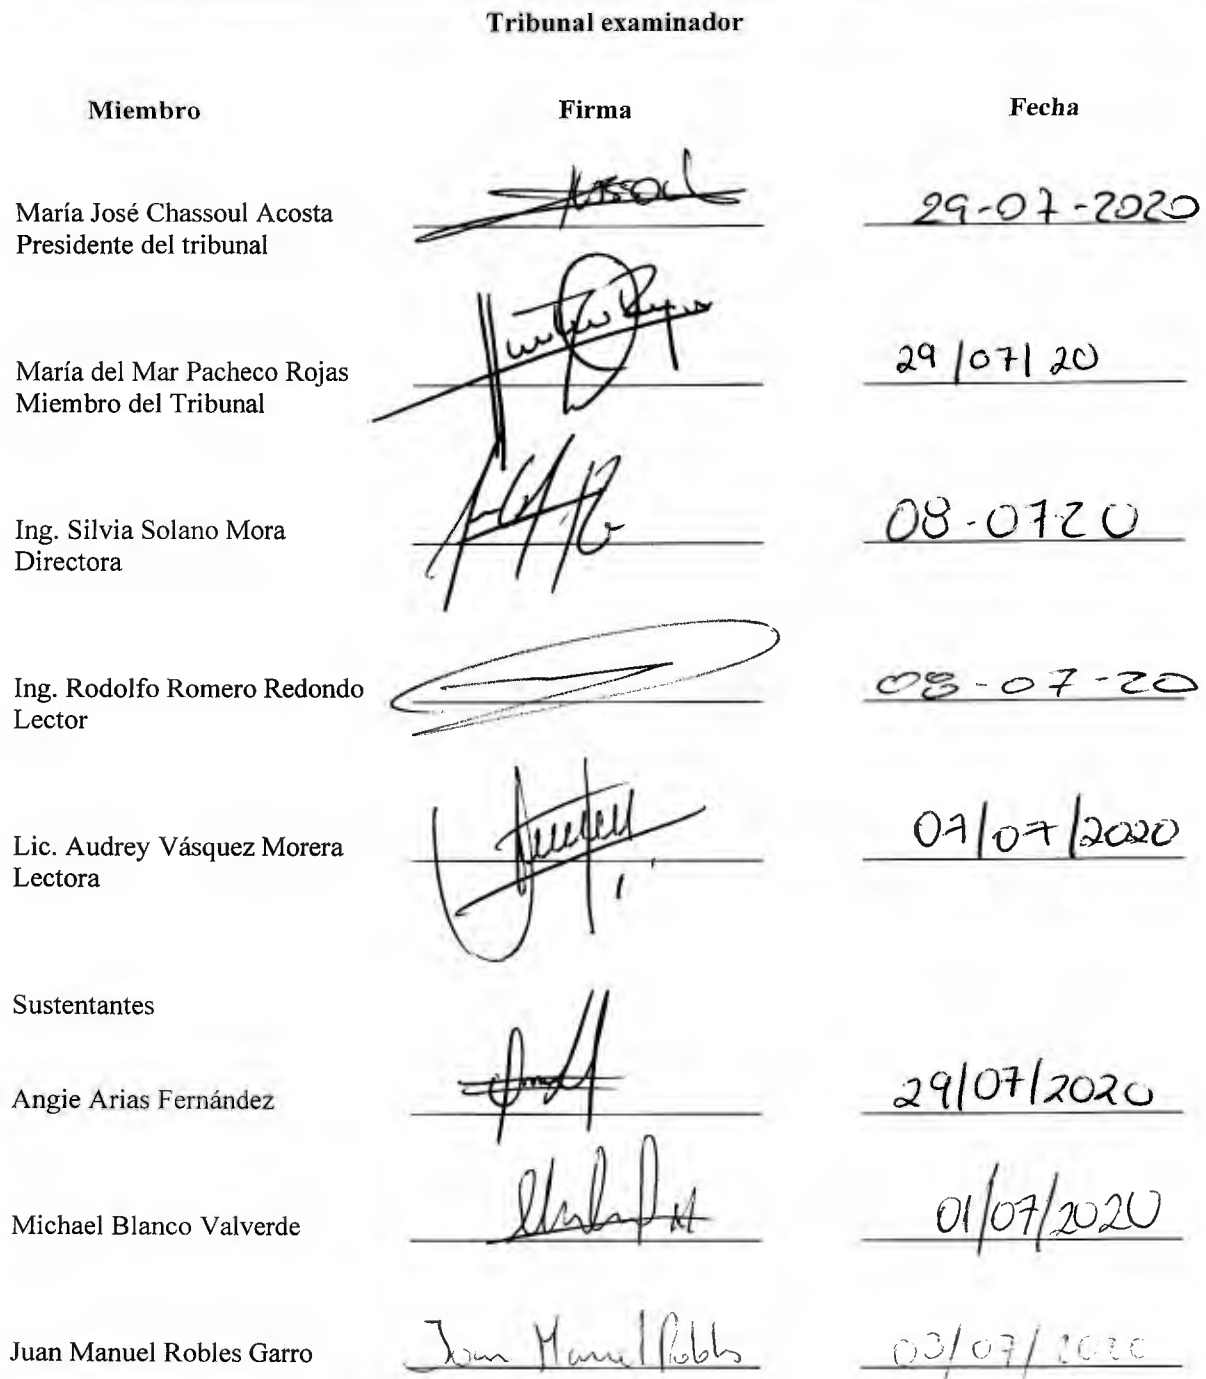 Tribunal examinador
Miembro Firma Fecha
María José Chassoul Acosta
Presidente del tribunal
29-07-2020
María del Mar Pacheco Rojas
Miembro del Tribunal
29/07/20
Ing. Silvia Solano Mora
Directora
08-0720
Ing. Rodolfo Romero Redondo
Lector
08-07-20
Lic. Audrey Vásquez Morera
Lectora
07/07/2020
Sustentantes
Angie Arias Fernández
29/07/2020
Michael Blanco Valverde
01/07/2020
Juan Manuel Robles Garro Juan Manuel Robles 03/07/2020